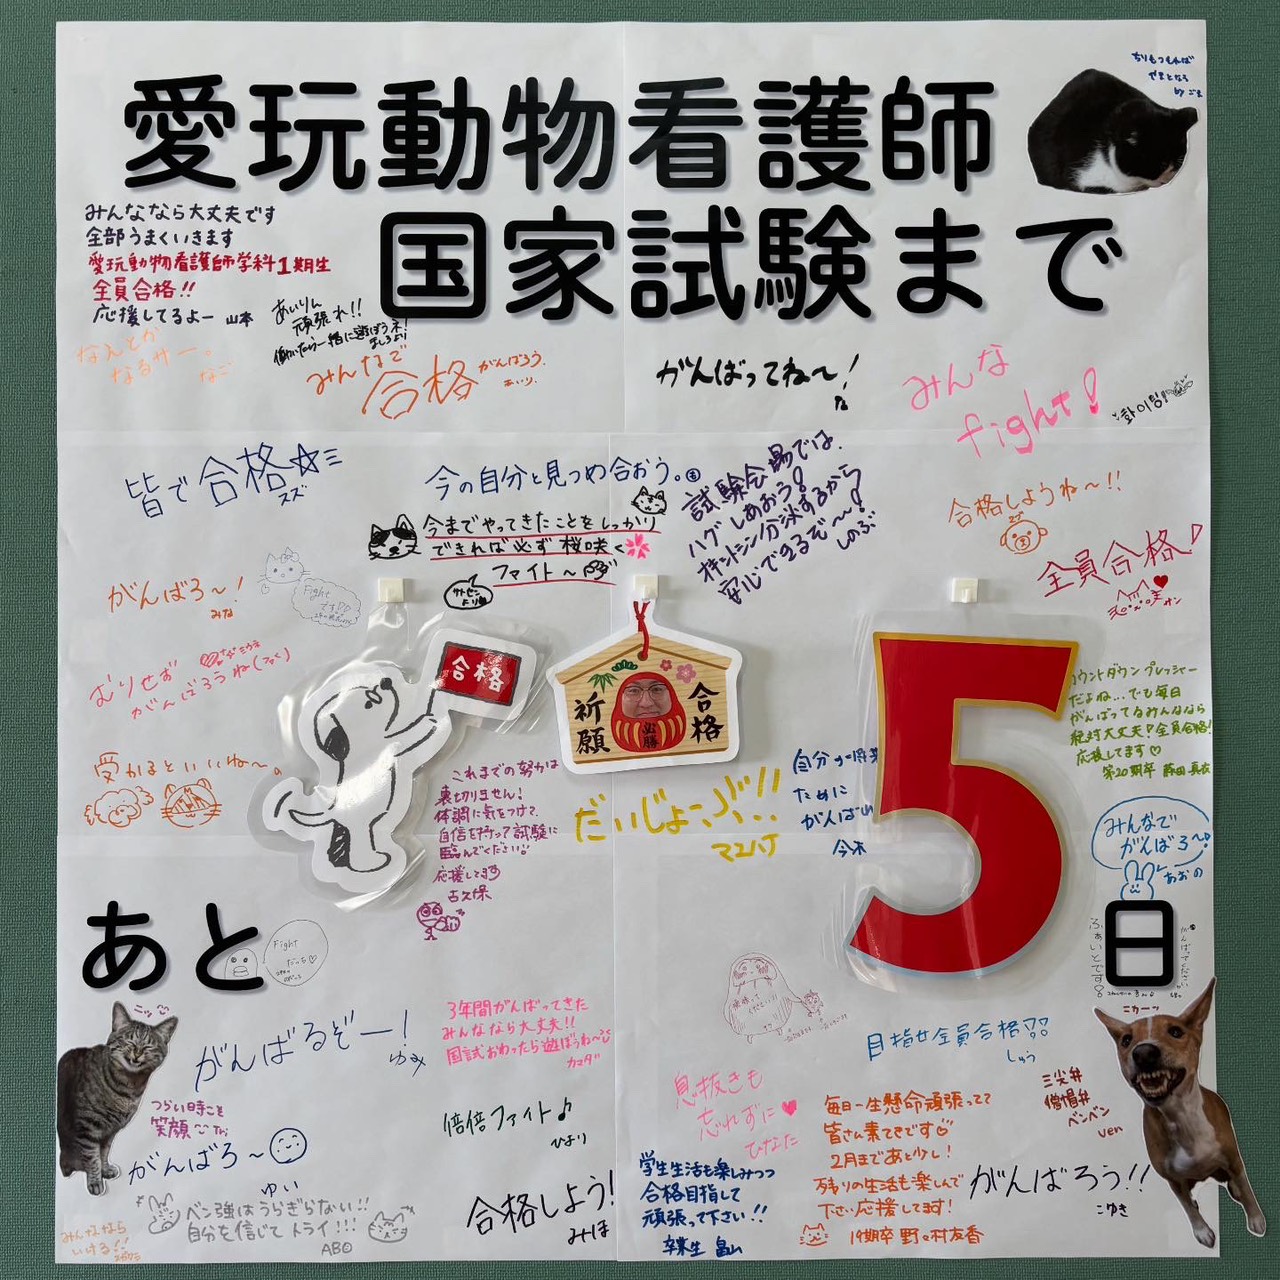 愛玩動物看護師
国家試験まで
ちりもつもれば
やまとなる
by ごま
みんななら大丈夫です
全部うまくいきます
愛玩動物看護師学科1期生
全員合格!!
応援してるよー 山本
あいりん
頑張れ!!
働いたら一緒に遊ぼうネ!
ましろより
なんとか
なるサー。
なご
みんなで
合格
がんばろう。
あいり.
がんばってね〜!
な
みんな
fight!
화이팅!
皆で合格☆
スズ
今の自分と見つめ合おう。
今までやってきたことをしっかり
できれば必ず桜咲く
ファイト〜
サトセン
より
試験会場では、
ハグしあおう!
オキシトシン分泌するから
安心できるぞ〜!
しのぶ
合格しようね〜!!
全員合格♪
がんばろ〜!
みな
Fight
です
むりせず
がんばろうね
受かるといいね〜。
合格
祈願
合格
必勝
5
カウントダウンプレッシャー
だよね...でも毎日
がんばってるみんななら
絶対大丈夫!全員合格!
応援してます♡
第20期卒 藤田真衣
これまでの努力は
裏切りません!
体調に気をつけて、
自信を持って試験に
臨んでください!
応援してます
古久保
だいじょーぶ!!
マエハタ
自分の将来
ために
がんばい
今木
みんなで
がんばろ〜!
あおの
あと
日
Fight
だっち♡
ふぁいとです!
がんばってください
ニッ
がんばるぞー!
ゆみ
3年間がんばってきた
みんななら大丈夫!!
国試おわったら遊ぼうね〜
カマダ
目指せ全員合格
しゅう
ニカーッ
つらい時こそ
笑顔
がんばろ〜
ゆい
倍倍ファイト♪
ひより
息抜きも
忘れずに♥
ひなた
毎日一生懸命頑張ってて
皆さん素てきです♡
2月まであと少し!
残りの生活も楽しんで
下さい応援してます!
19期卒 野々村友香
三尖弁
僧帽弁
ベンベン
ven
学生生活も楽しみつつ
合格目指して
頑張って下さい!!
卒業生 畠山
がんばろう!!
こゆき
ベン強はうらぎらない!!
自分を信じてトライ!!!
ABO
みんななら
いける!!
合格しよう!
みほ